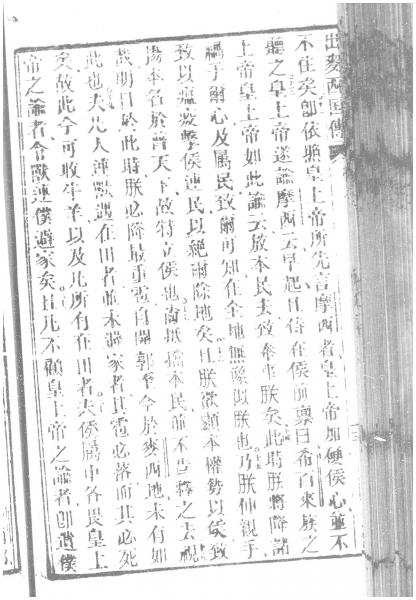 出麥西國傳
不住矣即依照皇上帝所先言摩西者皇上帝加硬侯心並不
聽之皇上帝遂諭摩西云早起且侍在侯前稟曰希百來族之
上帝皇上帝如此諭云放本民去致奉事朕矣此時朕將降諸
禍于爾心及屬民致爾可知在全地無像似朕也乃朕伸親手
致以瘟疫擊侯連民以絕爾除地矣且朕欲顯本權勢以俟致
揚本名於普天下故特立侯也爾抵擋本民而不吿釋之去視
哉明日於此時朕必降最重雹自開郭 今於麥西地未有如
此也夫凡人連獸遇在田者而未歸家者其雹必落而其必死
矣故此今可收牛羊以及凡所有在田者夫侯屬中各畏皇上
帝之諭者令獸連僕避家矣且凡不顧皇上帝之諭者即遺僕